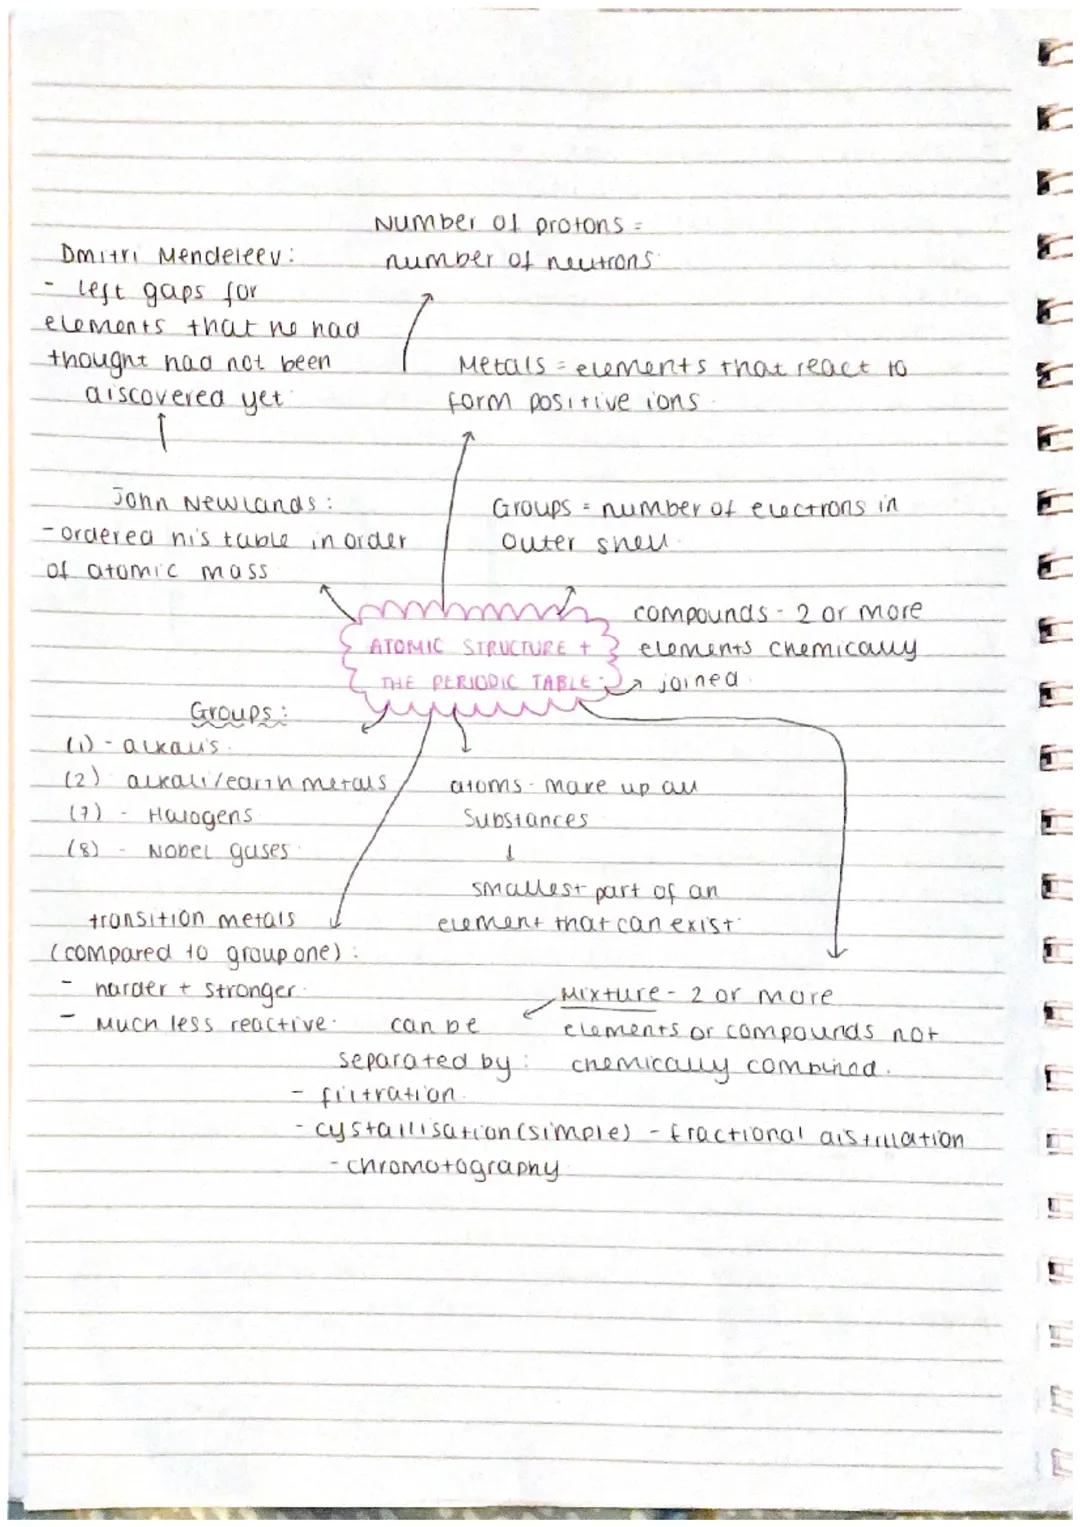 Number of protons =
number of neutrons
Dmitri Mendeleev:
- left gaps for
elements that he had
thought had not been
discovered yet
Metals = elements that react to
form positive ions
John Newlands:
- ordered his table in order
of atomic mass
Groups = number of electrons in
outer shell
compounds - 2 or more
elements chemically
joined
ATOMIC STRUCTURE +
THE PERIODIC TABLE:
Groups:
(1) - alkali's
(2) alkali/earth metals
(7) - Halogens
(8) - Nobel gases
atoms - make up all
substances
smallest part of an
element that can exist
transition metals
(compared to group one):
- harder + stronger
- Much less reactive
Mixture - 2 or more
elements or compounds not
chemically combined.
can be
separated by:
- filtration
- cystallisation (simple) - fractional distillation
- chromotography